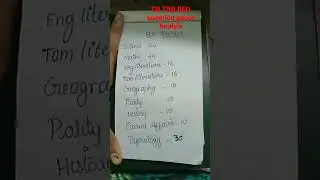 TN TRB BEO
question paper
Analysis
Eng liter
Tam liter
Geogra
Polity
Histo
Science 44
Maths - 44
Eng literature - 16
Tam literature - 16
Geography - 10
Polity 10
History - 10
Current Affairs - 10
Psychology - 30